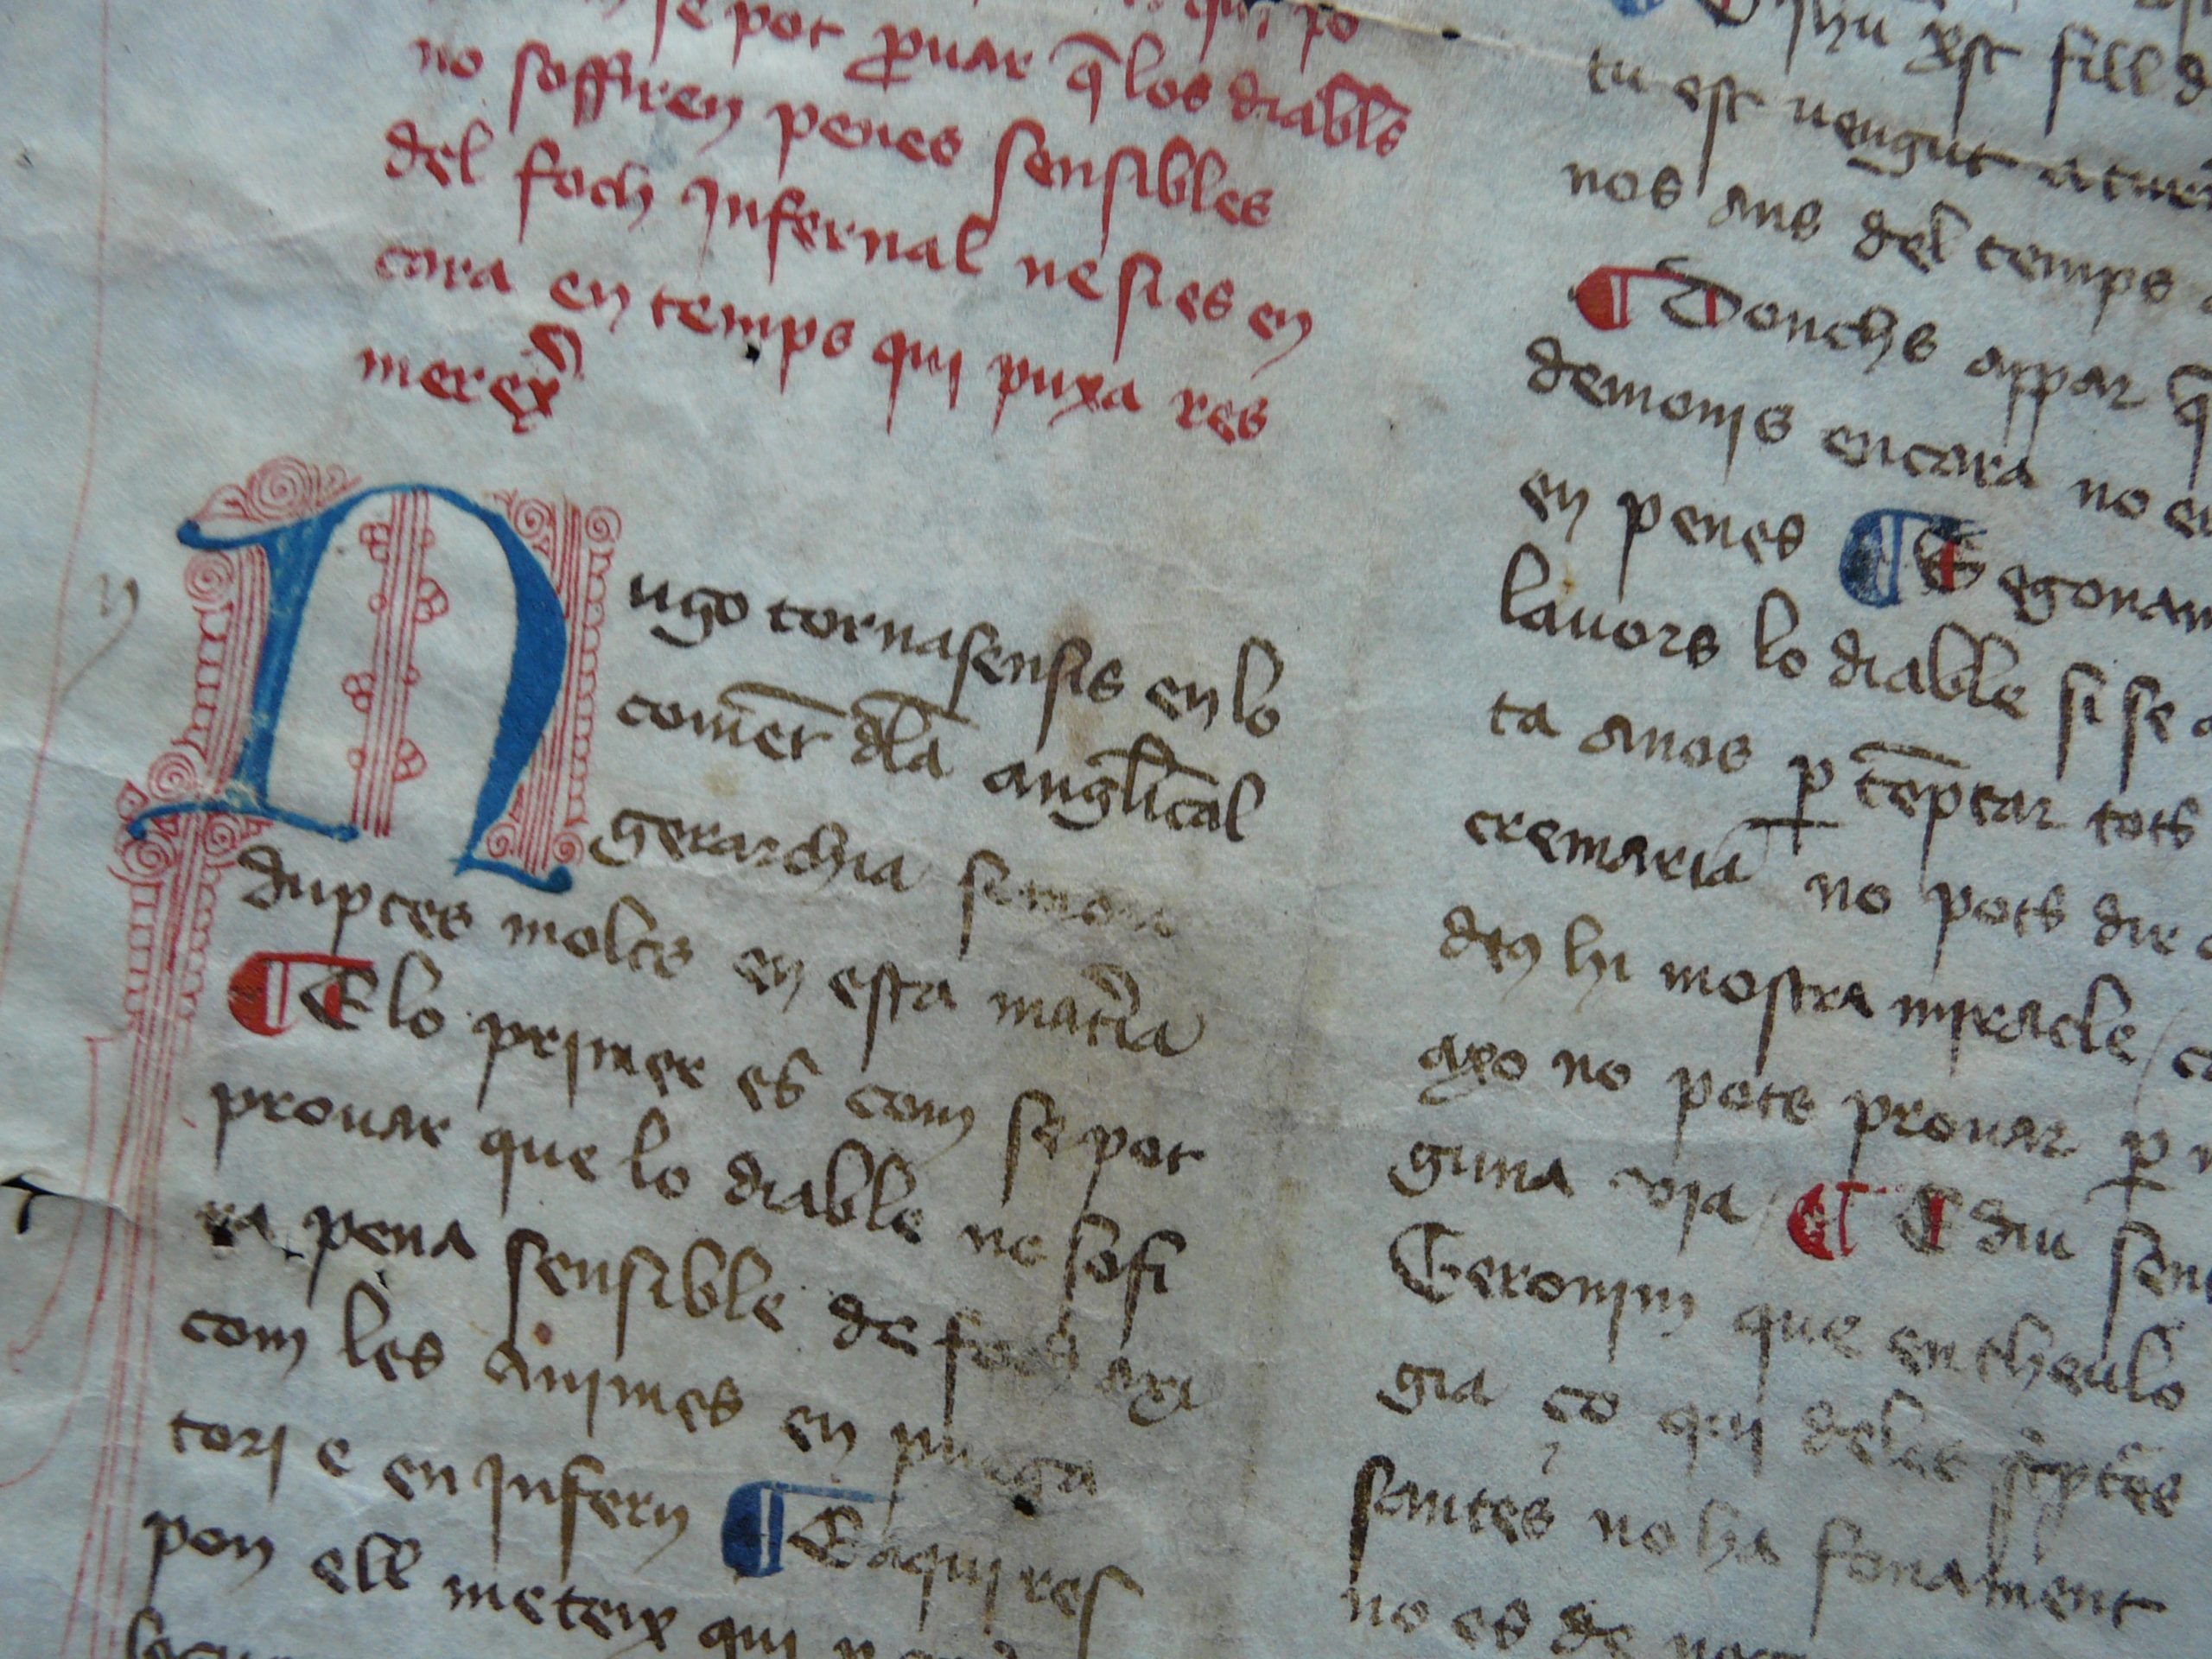 se pot qui po
no soffiren penes sensibles
del foch infernal ne si es en
cara en temps qui puxa res
merex
n
Nugo tornasensis en lo
coment dla anglical
gerarchia se mou
duptes molts en esta matia
¶ E lo primer es com se pot
prouar que lo diable no sofi
ra pena sensible de foch axi
com les animes en purga
tori e en infern ¶ E aqui res
pon ell meteix qui
Jhu xst fill d
tu est uengut aturm
nos ans del temps
¶ Donchs appar q
demonis encara no en
en penes ¶ E segonam
lauors lo diable si se a
ta anos p temptar tots
cremaria no pots dir
deus hi mostra miracle / ca
axo no pots prouar p n
guna cosa / ¶ E diu sen
Geronim que en theulo
gia ço qui deles scptes
santes no ha fonament
no es de